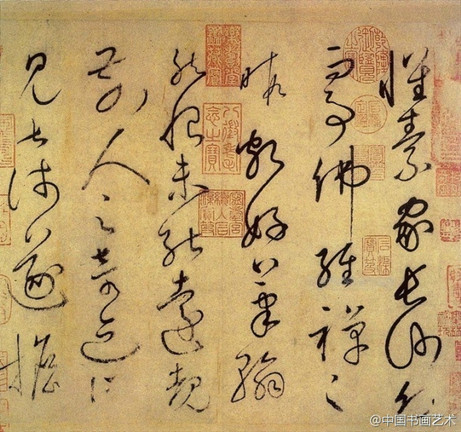 懷素家長沙幼而
事佛經禪之
暇頗好筆翰
然恨未能遠覩
前人之奇迹所
見甚淺遂擔
@中国书画艺术